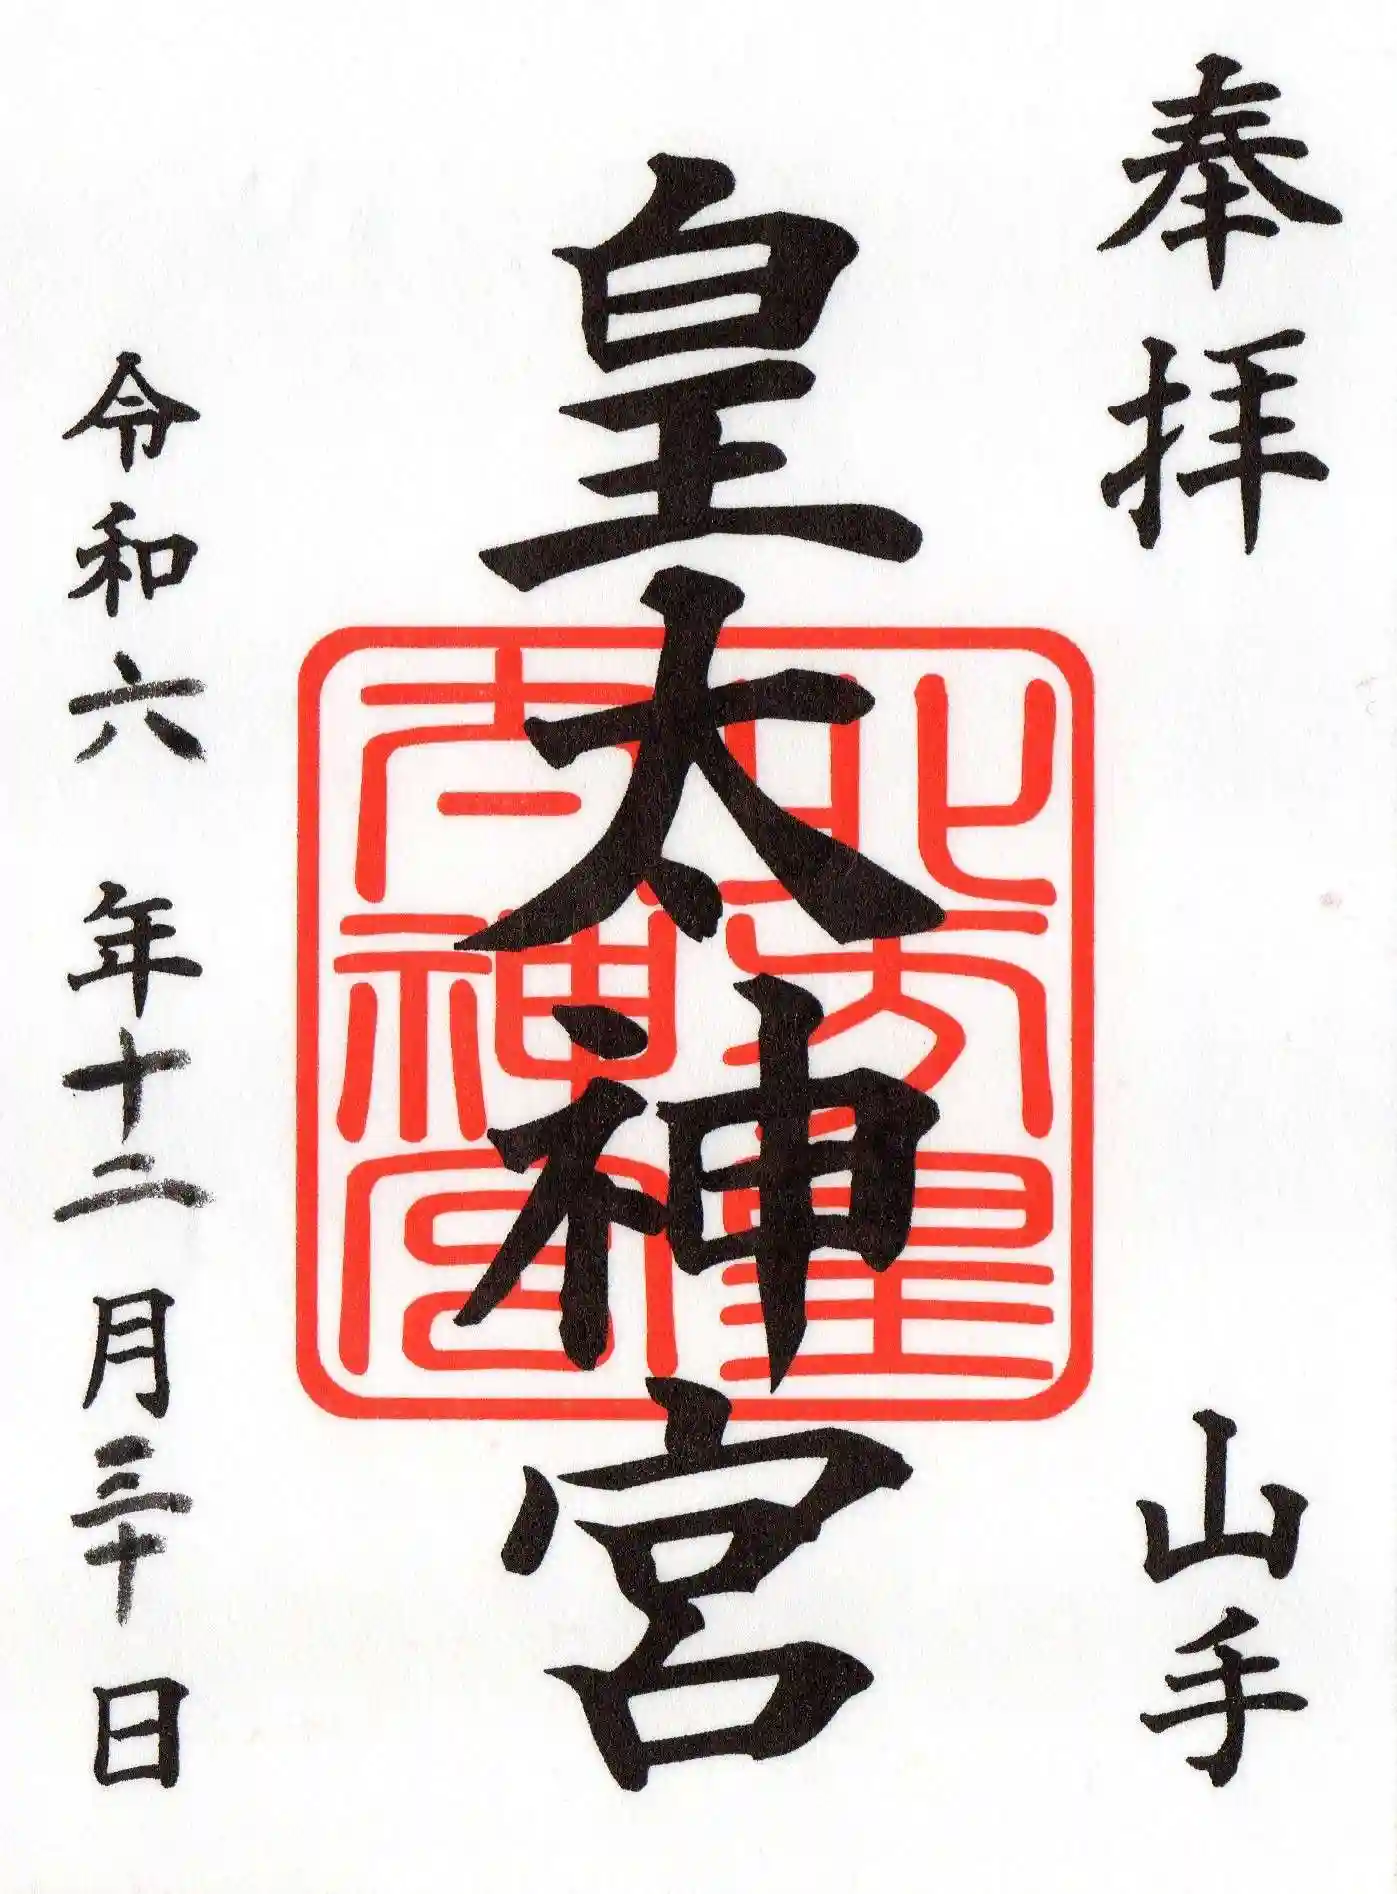 奉拝
山手
皇太神宮
北方皇
太神宮
令和六年十二月三十日